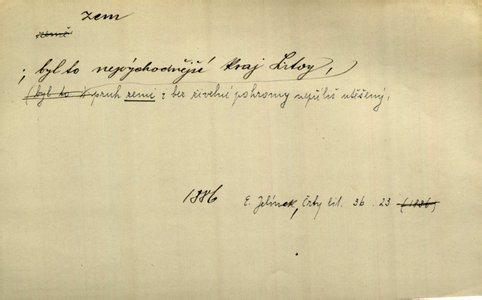 zem
země
; byl to nejvýchodnější kraj Litvy,
(byl to) pruh země i bez živelné pohromy nepříliš utěšený,
1886 E. Jelínek, Črty lit. 36. 23 (1886)